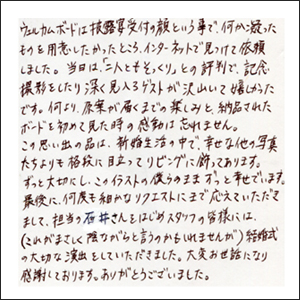 ウェルカムボードは披露宴受付の顔という事で、何か凝った
ものを用意したかったところ、インターネットで見つけて依頼
しました。当日は、「二人ともそっくり」との評判で、記念
撮影をしたり深く見入るゲストが沢山いて嬉しかった
です。何より、原案が届くまでの楽しみと、納品された
ボードを初めて見た時の感動は忘れません。
この思い出の品は、新婚生活の中で、幸せな他の写真
たちよりも格段に目立ってリビングに飾ってあります。
ずっと大切にし、このイラストの僕らのままずっと幸せでいます。
最後に、何度も細かなリクエストにまで応えていただき
まして、担当の石井さんをはじめスタッフの皆様には、
(これがまさしく陰ながらと言うのかもしれませんが)結婚式
の大切な演出をしていただきました。大変お世話になり
感謝しております。ありがとうございました。